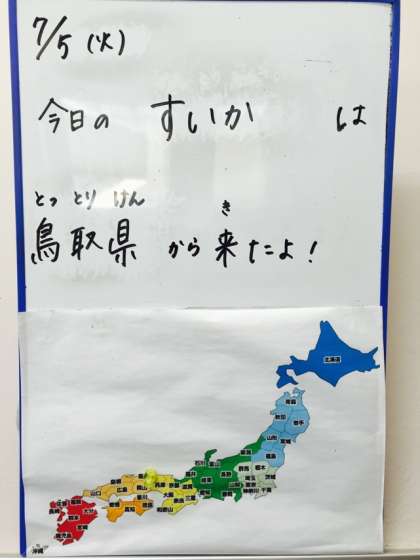 7/5 (火)
今日の すいか は
とっ とり けん
き
鳥取県 から来たよ!
北海道
青森
秋田
岩手
山形
宮城
福島
新潟
石川 富山
福井
長野
群馬
栃木
茨城
埼玉
東京
千葉
神奈川
山梨
静岡
岐阜
愛知
滋賀
京都
兵庫
大阪
奈良
三重
和歌山
岡山
島根
広島
山口
香川
徳島
愛媛
高知
福岡
佐賀
長崎
大分
熊本
宮崎
鹿児島
沖縄